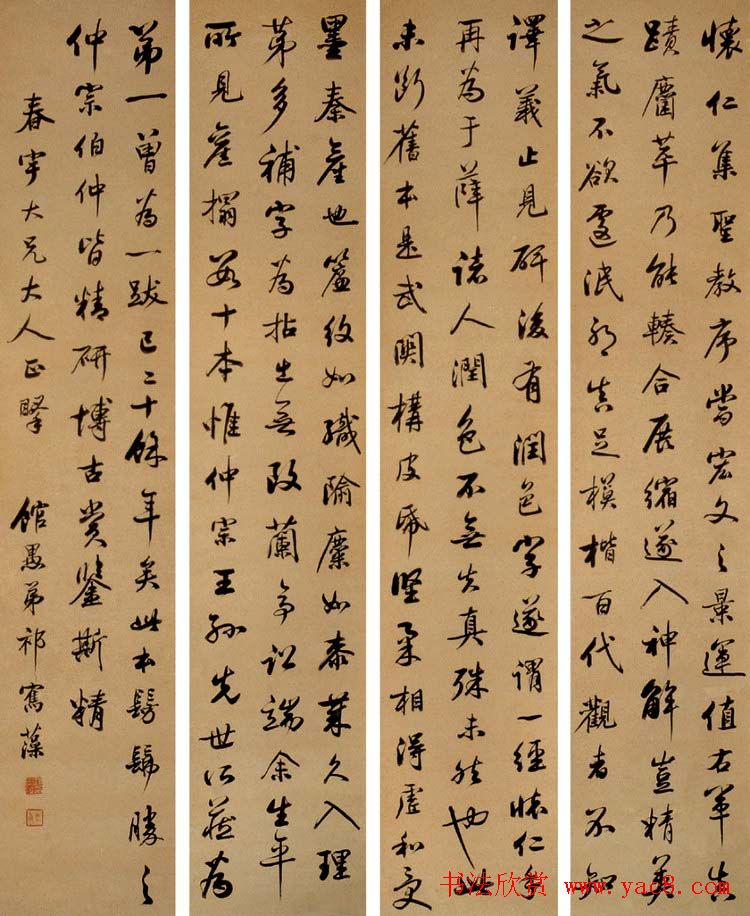 懷仁集聖教序當宏文之景運值右軍真
蹟麕萃乃能輳合展縮遂入神解豈精美
之氣不欲遽泯邪真足模楷百代觀者不知
譯義止見研後有潤色字遂謂一經懷仁手
再為于薛諸人潤色不無失真殊未然也此
未斷舊本是武關構皮紙堅柔相得虛和受
墨秦產也簾紋如織隃麋如漆業久入理
第多補字為拈出無改蘭亭訟端余生平
所見舊搨數十本惟仲宗王孫先世所藏為
第一曾為一跋已二十餘年矣此本髣髴勝之
仲宗伯仲皆精研博古賞鑒斯精
春宇大兄大人正
館愚弟祁寯藻
书法欣赏 www.yac8.com